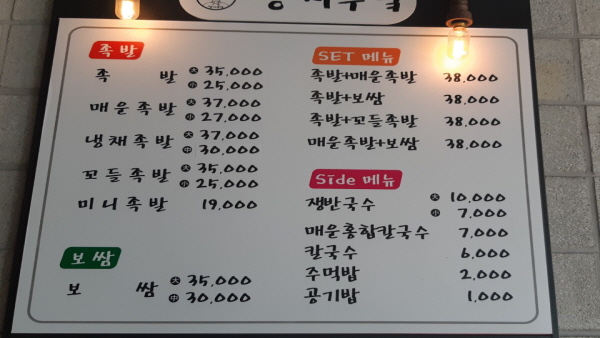 족발
족 발 大 35,000
小 25,000
매운족발 大 37,000
小 27,000
냉채족발 大 37,000
中 30,000
꼬들족발 大 35,000
小 25,000
미니족발 19,000
보쌈
보 쌈 大 35,000
中 30,000
SET 메뉴
족발+매운족발 38,000
족발+보쌈 38,000
족발+꼬들족발 38,000
매운족발+보쌈 38,000
Side 메뉴
쟁반국수 大 10,000
小 7,000
매운홍합칼국수 7,000
칼국수 6,000
주먹밥 2,000
공기밥 1,000